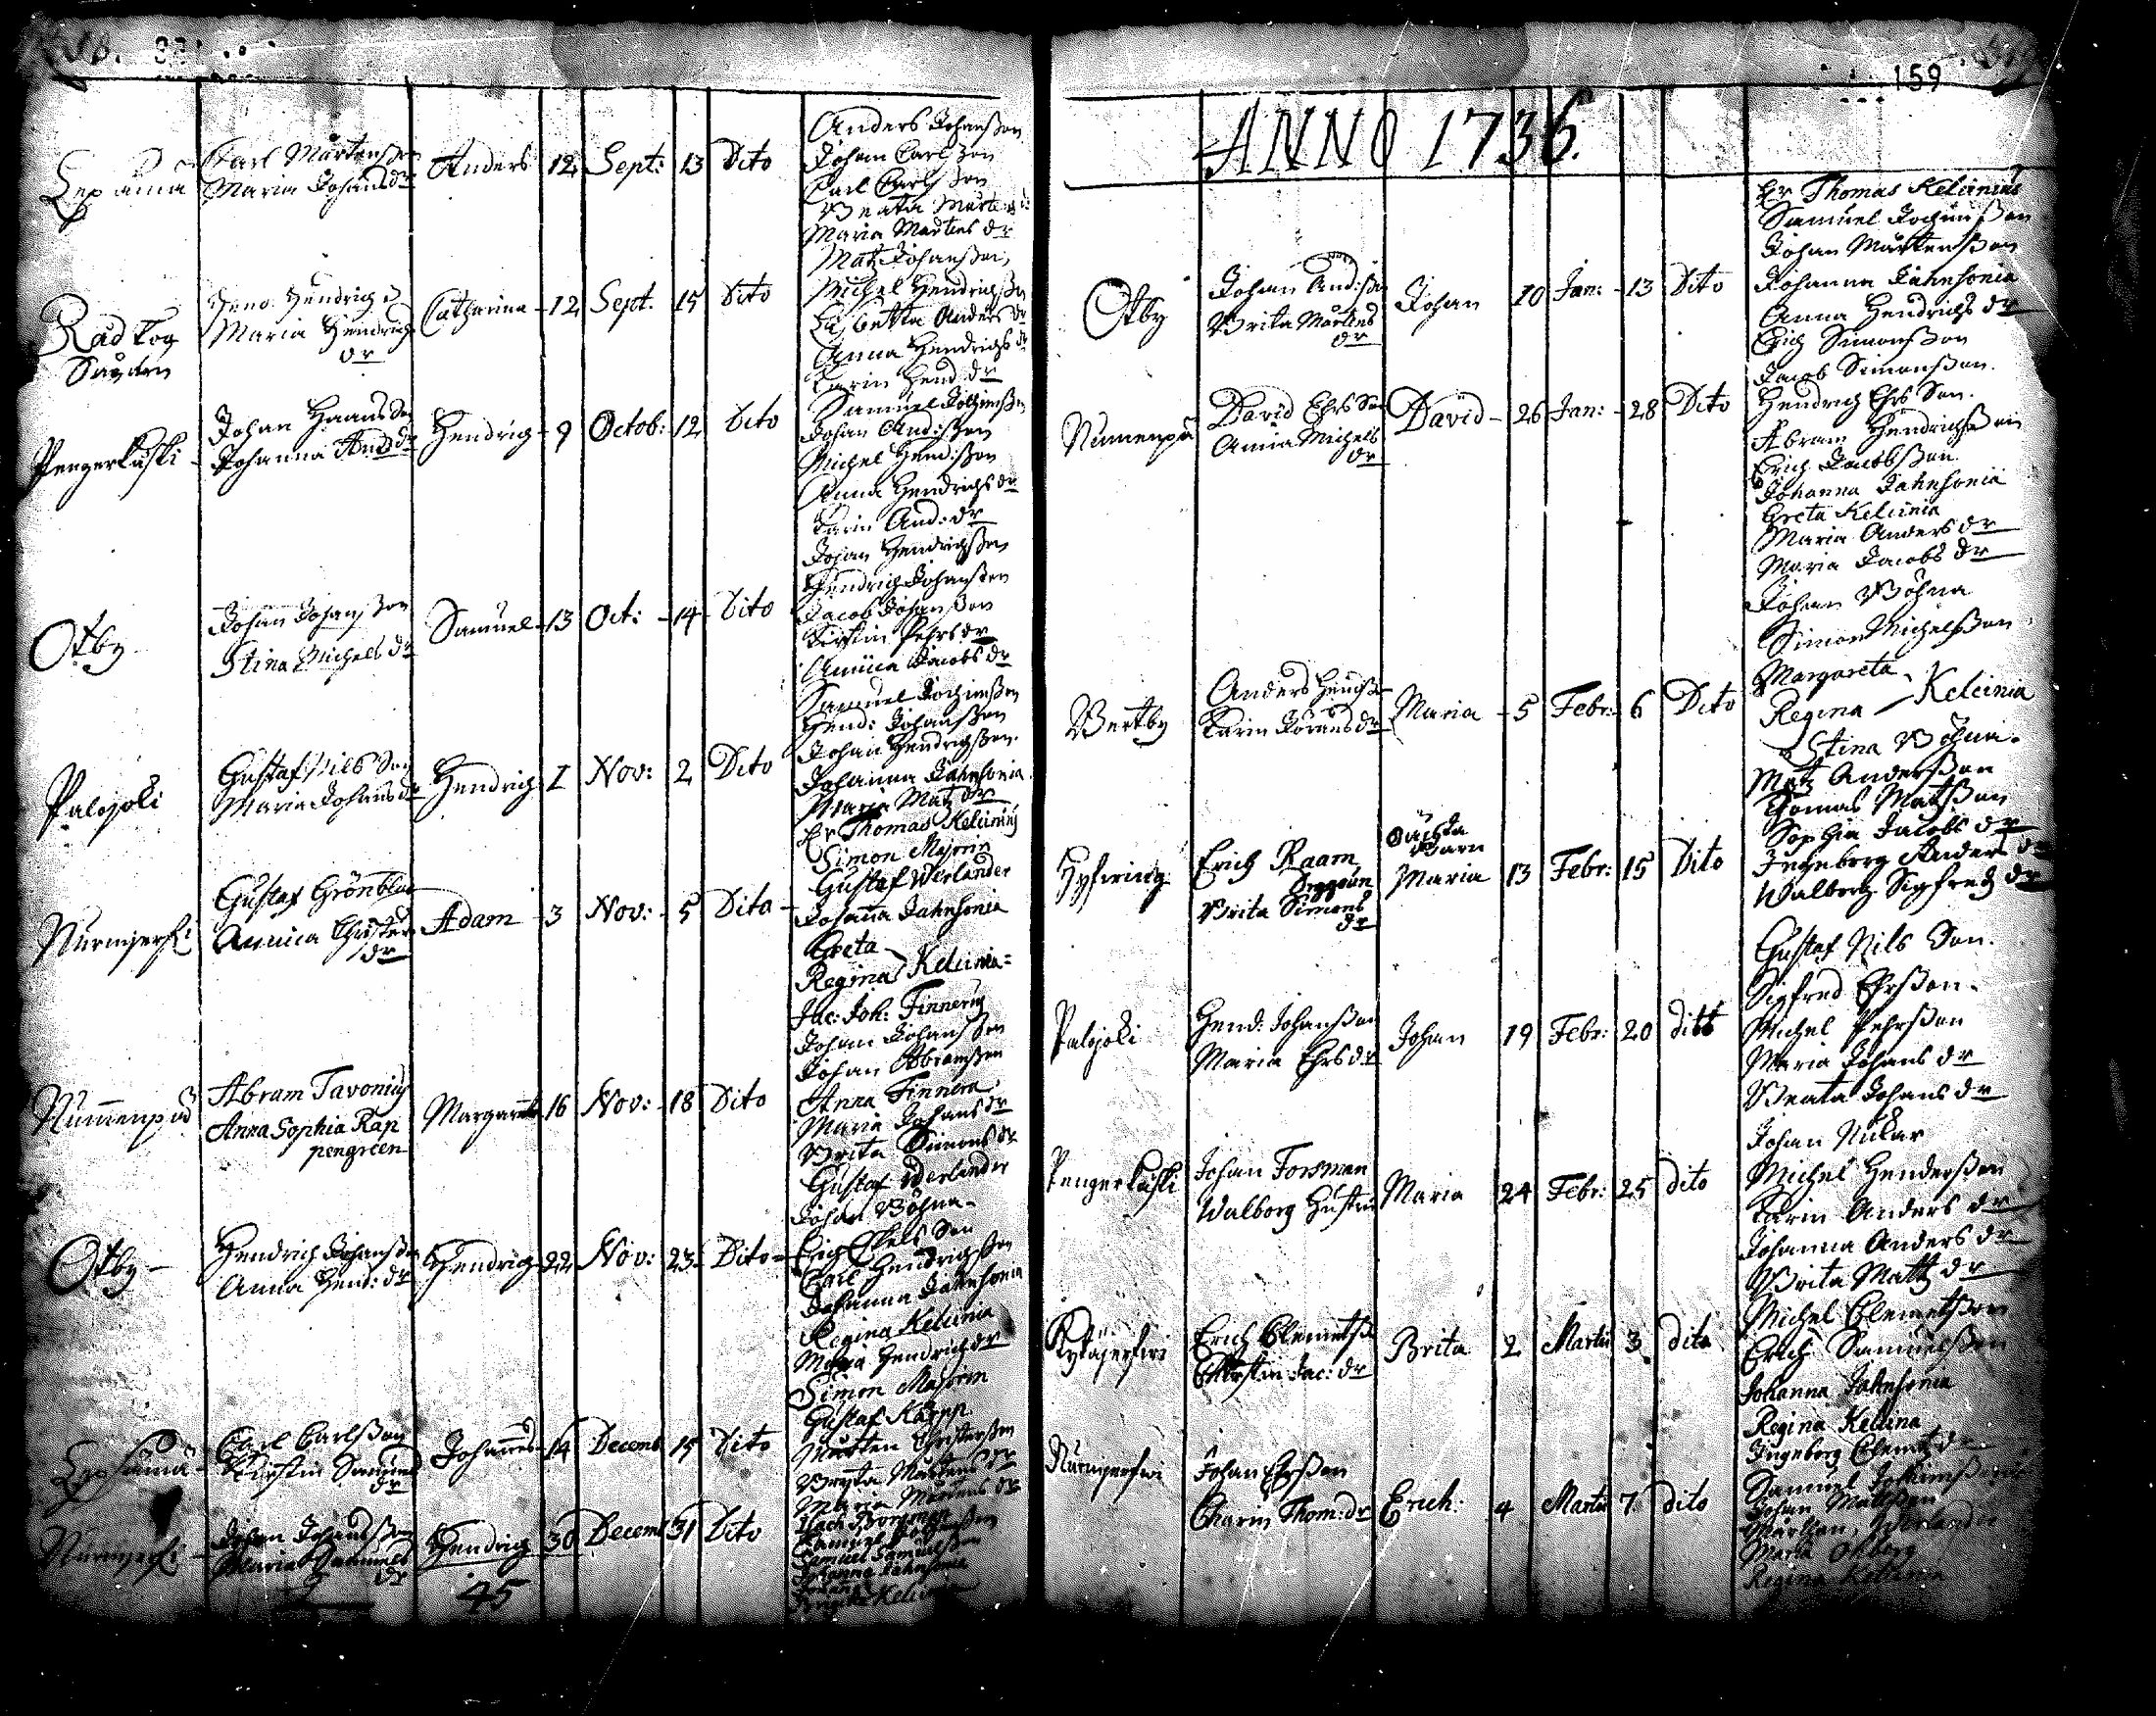 159
Carl Mårtensson
Maria Johans dr
Anders 12 Sept: 13 Dito
Anders Johansson
Johan Carlsson
Carl Carlsson
Beata
Maria Martens dr
Matz Johansson
Hendrich
Maria Hendrichs
dr
Catharina 12 Sept. 15 Dito
Michel Hendrichsson
Lisbetta Anders dr
Anna Hendrichs dr
Karin Hend: dr
Pengerkåski
Johan Haans Son
Johanna And: dr
Hendrich 9 Octob: 12 Dito
Samuel
Johan And:sson
Michel Hend:sson
Anna Hendrichs dr
Karin And: dr
Otby
Johan Johansson
Stina Michels dr
Samuel 13 Oct: 14 Dito
Johan Hendrichsson
Hendrich Johansson
Jacob Johansson
Kirstin Pehrs dr
Annica Jacobs dr
Palojoki
Gustaf Nils Son
Maria Johans dr
Hendrich 1 Nov: 2 Dito
Samuel Jochimsson
Hend: Johansson
Johan Hendrichsson
Johanna Jahnsonia
Maria Matz dr
Nurmjerfi
Gustaf Grönblad
Annica Christers
dr
Adam 3 Nov: 5 Dito
Hr Thomas Keleinius
Simon
Gustaf Werlander
Johanna Jahnsonia
Greta
Regina Keleinia
Nummenpää
Abram Tavonius
Anna Sophia Rap
pengreen
Margareta 16 Nov: 18 Dito
Jac: Joh: Finnerus
Johan Johansson
Johan Abramsson
Anna Finnera
Maria Johans dr
Brita Simons dr
Otby
Hendrich Johansson
Anna Hend: dr
Hendrich 22 Nov: 23 Dito
Gustaf Werlander
Johan Böhna
Erich
Carl Hendrichsson
Johanna Jahnsonia
Regina Keleinia
Maria Hendrich dr
Carl Carlsson
Kirstin Samuels
dr
Johannes 14 Decemb 15 Dito
Simon
Gustaf Karpp
Mårten Christersson
Bryta Mårtens dr
Maria Mårtens dr
Nurmjerfi
Johan Johansson
Maria Samuels
dr
Hendrich 30 Decemb 31 Dito
Samuel Samuelsson
Johanna Jahnsonia
Keleinia
45
ANNO 1736.
Otby
Johan And:son
Brita Mårtens
dr
Johan 10 Jan: 13 Dito
Hr Thomas Keleinius
Samuel Jochimsson
Johan Mårtensson
Johanna Jahnsonia
Anna Hendrichs dr
Nummenpä
David Ehrs Son
Anna Michels
dr
David 26 Jan: 28 Dito
Erich Simonsson
Jacob Simonsson.
Hendrich Ehrs Son.
Abram Hendrichsson
Erich Jacobsson.
Johanna Jahnsonia
Greta Keleinia
Maria Anders dr
Maria Jacobs dr
Wertby
Anders
Karin Jörans dr
Maria 5 Febr: 6 Dito
Johan Böhna
Simon Michelsson
Margareta
Regina Keleinia
Stina Böhna.
Hyfwing
Erich Raam
Brita Simons
dr
Barn
Maria 13 Febr: 15 Dito
Matz Andersson
Thomas Matzson
Sophia Jacobs dr
Ingeborg Anders dr
Walborg Sigfredz dr
Palojoki
Hend: Johansson
Maria Ehrs dr
Johan 19 Febr: 20 dito
Gustaf Nils Son.
Sigfred Ehrsson.
Michel Pehrsson
Maria Johans dr
Beata Johans dr
Pengerkåski
Johan Forsman
Walborg Hustru
Maria 24 Febr: 25 dito
Johan
Michel Hendersson
Karin Anders dr
Johanna Anders dr
Brita Mattz dr
Kytäjerfwi
Erich Clemetss
Christin Jac: dr
Brita 2 Martii 3 dito
Michel Clemetsson
Erich Samuelsson
Johanna Jahnsonia
Regina Keleina
Ingeborg Clemetz dr
Nurmjerfwi
Johan Ehrsson
Charin Thom: dr
Erich: 4 Martii 7 dito
Samuel Jochimsson
Johan Mattsson
Werlander
Maria
Regina Keleinia